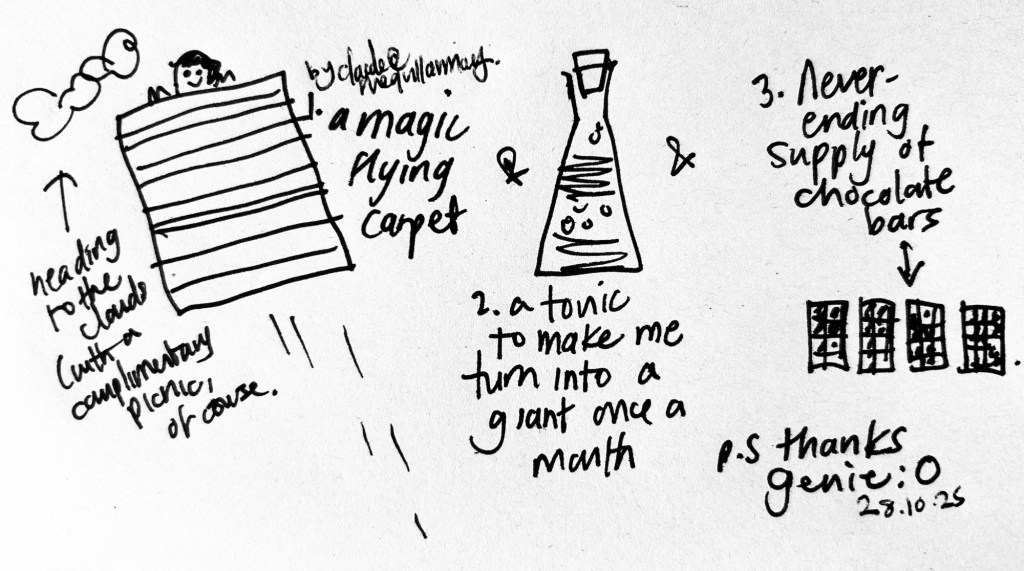 by claude@
1. a magic
flying
carpet
&
heading
to the
clouds
(with a
complimentary
picnic,
of course.
2. a tonic
to make me
turn into a
giant once a
month
&
3. Never-
ending
supply of
chocolate
bars
p.s thanks
genie :O
28.10.25